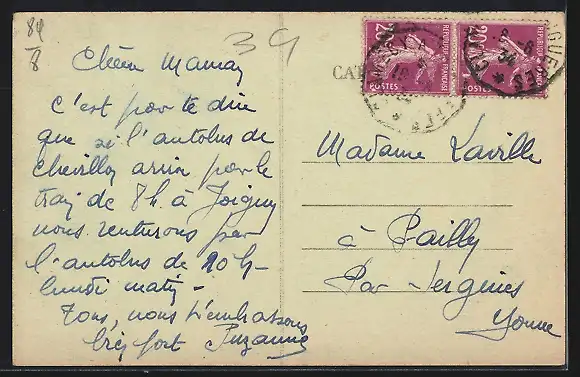 84
8
39
Chère Maman
C'est pour te dire
que si l'autobus de
Chevillon arrive pour le
train de 8h. à Joigny
nous rentrerons par
l'autobus de 10h
lundi matin -
Tous, nous t'embrassons
très fort Suzanne
CA
20c POSTES REPUBLIQUE FRANÇAISE
20c POSTES REPUBLIQUE FRANÇAISE
Madame Laville
à Pailly
Par Sergines
Yonne